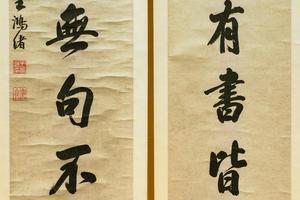 有書皆
無句不
王鴻緒